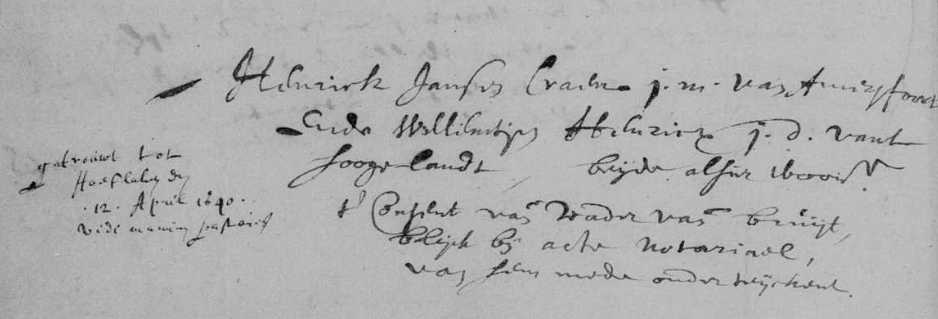 Henrick Jansen Craen j.m. van Amersfoort
Ende Willemtijen Henricx j.d. vant
hooge landt, beijde alhier woon.
't Consent van vader van bruijt,
blijck bij acte Notariael,
van hem mede onderteijckent.
getrouwt tot
Hoeflaken den
12. April 1640.
vide manum pastoris